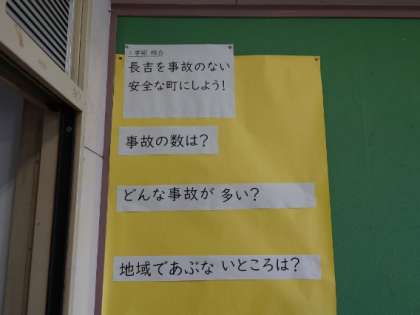 長吉を事故のない
安全な町にしよう!
事故の数は?
どんな事故が 多い?
地域であぶな いところは?